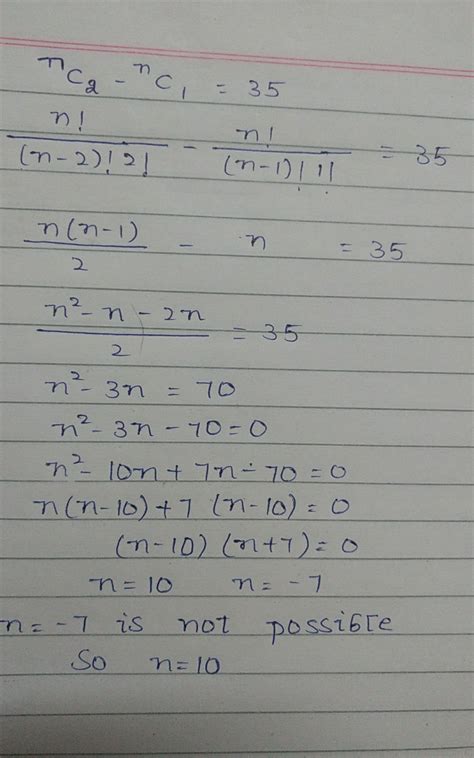 ⁿC₂ - ⁿC₁ = 35
n!/(n-2)!2! - n!/(n-1)!1! = 35
n(n-1)/2 - n = 35
n²-n-2n/2 = 35
n²-3n = 70
n²-3n-70=0
n²-10n+7n-70=0
n(n-10)+7(n-10)=0
(n-10)(n+7)=0
n=10 n=-7
n=-7 is not possible
So n=10